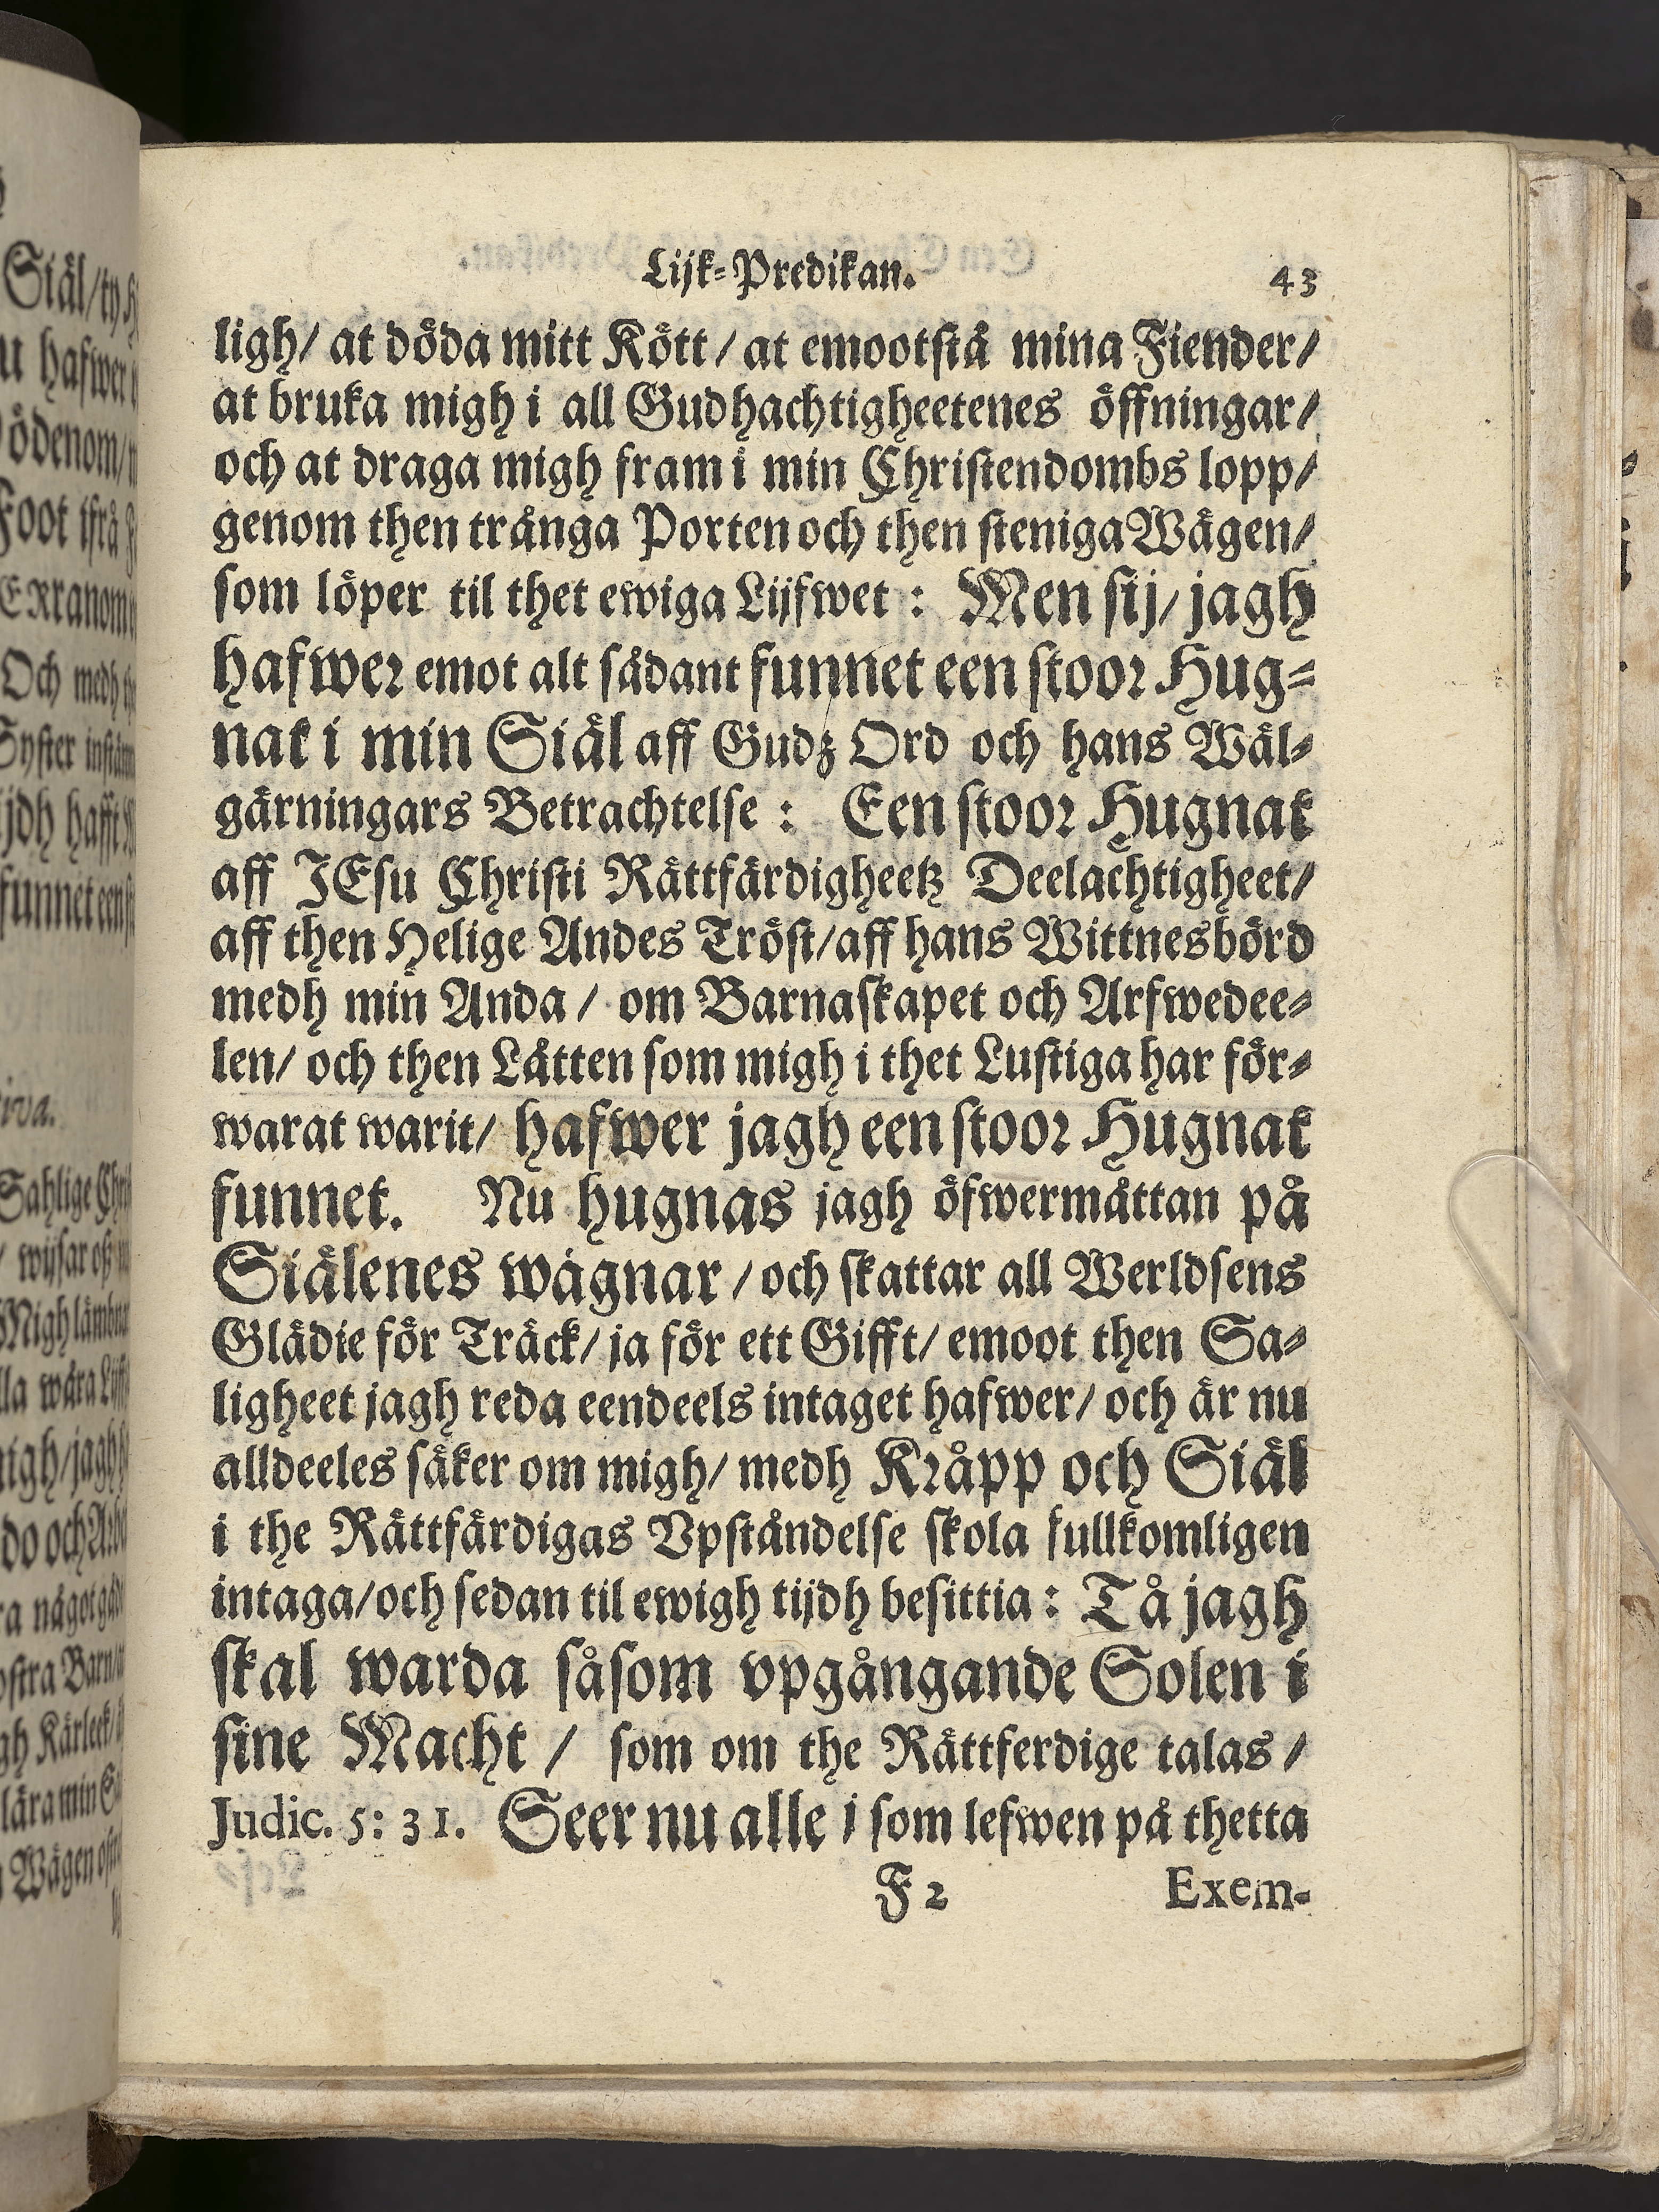 Lijk-Predikan. 43
ligh/ at döda mitt Kött/ at emootstå mina Fiender/
at bruka migh i all Gudhachtigheetenes öffningar/
och at draga migh fram i min Christendombs lopp/
genom then trånga Porten och then steniga Wägen/
som löper til thet ewiga Lijfwet: Men sij/ jagh
hafwer emot alt sådant funnet een stoor Hug-
nat i min Siäl aff Gudz Ord och hans Wäl-
gärningars Betrachtelse: Een stoor Hugnat
aff JEsu Christi Rättfärdigheetz Deelachtigheet/
aff then Helige Andes Tröst/ aff hans Wittnesbörd
medh min Anda/ om Barnaskapet och Arfwedee-
len/ och then Låtten som migh i thet Lustiga har för-
warat warit/ hafwer jagh een stoor Hugnat
funnet. Nu hugnas jagh öfwermåttan på
Siälenes wägnar/ och skattar all Werldsens
Glädie för Träck/ ja för ett Gifft/ emoot then Sa-
ligheet jagh reda eendeels intaget hafwer/ och är nu
alldeeles säker om migh/ medh Kråpp och Siäl
i the Rättfärdigas Vpståndelse skola fullkomligen
intaga/ och sedan til ewigh tijdh besittia: Tå jagh
skal warda såsom vpgångande Solen i
sine Macht/ som om the Rättferdige talas/
Judic. 5: 31. Seer nu alle i som lefwen på thetta
F 2 Exem-